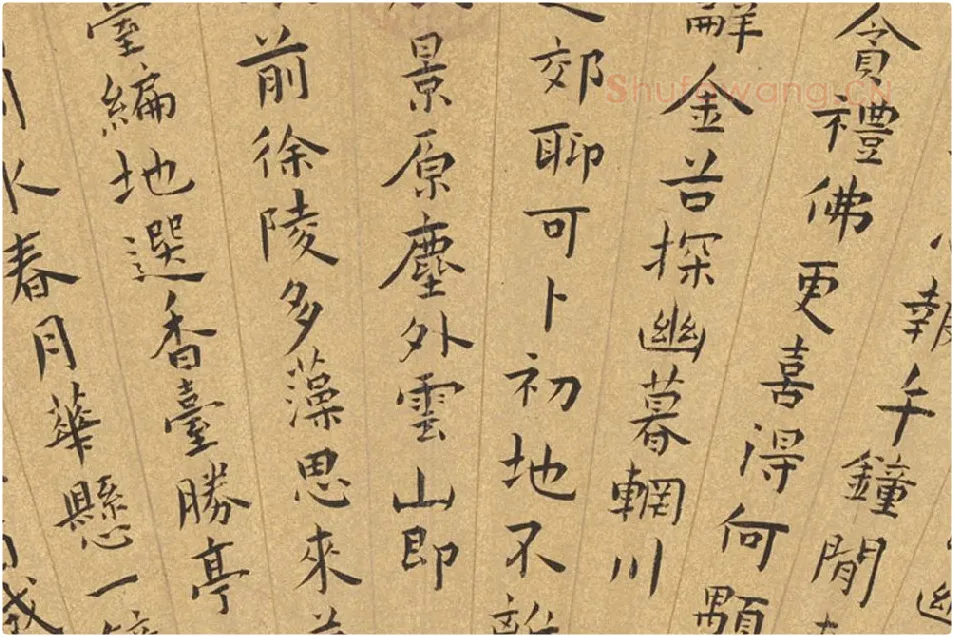 報千鐘閒
貪禮佛更喜得何顒
辭金苔探幽暮輞川
郊聊可卜初地不
景原塵外雲山即
前徐陵多藻思來
臺編地選香臺勝亭
水春月華懸一
Shufawang.CN